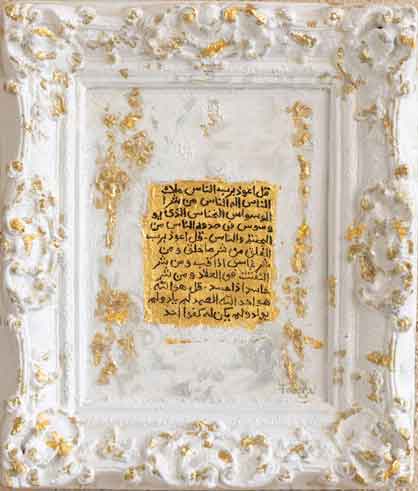 قل اعوذ برب الناس ملك
الناس اله الناس من شر ا
لوسواس الخناس الذي يو
وسوس في صدور الناس من
الجنة والناس . قل اعوذ برب
الفلق من شر ما خلق و من
غاسق اذا وقب و من شر
النفثت في العقد و من شر
حاسد اذا حسد . قل هو الله
هو احد الله الصمد لم يلد و لم
يولد و لم يكن له كفوا احد